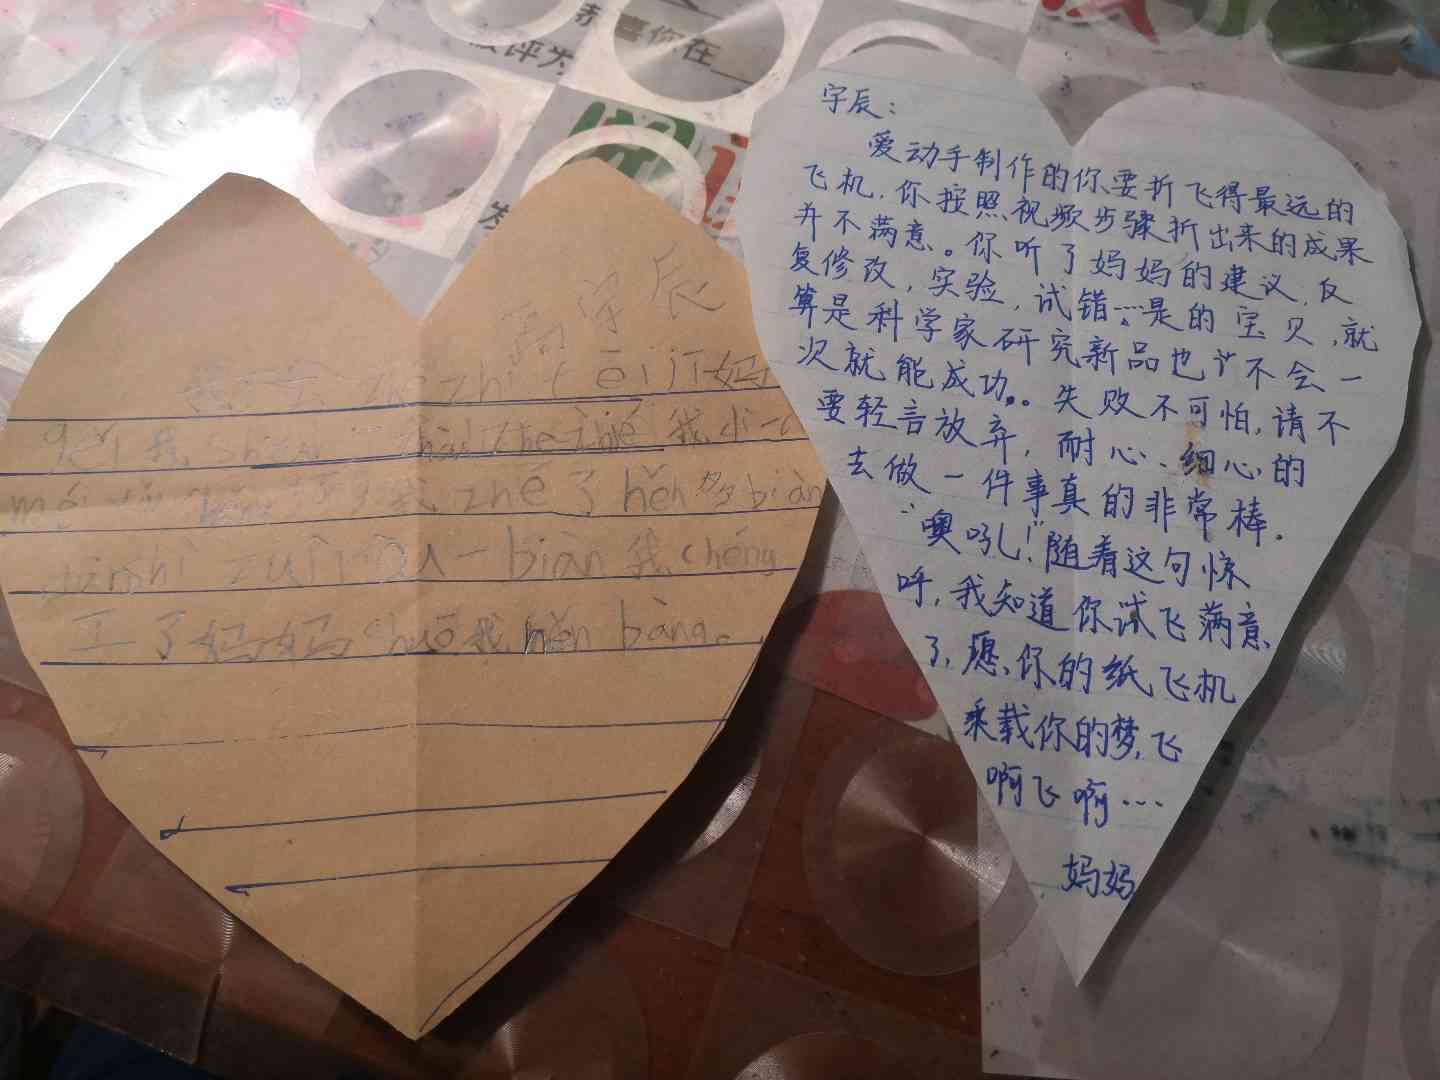 恭喜你在
被评为
宇辰
zhé zhǐ fēi jī 妈
gěi 我
我 zhé 了 hěn 多 biàn
zuì hòu 一 biàn 我 chéng
工 了 妈妈 shuō 我 hěn bàng。
宇辰：
爱动手制作的你要折飞得最远的
飞机，你按照视频步骤折出来的成果
并不满意。你听了妈妈的建议，反
复修改，实验，试错…是的宝贝，就
算是科学家研究新品也不会一
次就能成功。失败不可怕，请不
要轻言放弃，耐心、细心的
去做一件事真的非常棒。
“噢吼！”随着这句惊
呼，我知道你试飞满意
了，愿你的纸飞机
乘载你的梦，飞
啊飞啊…
妈妈